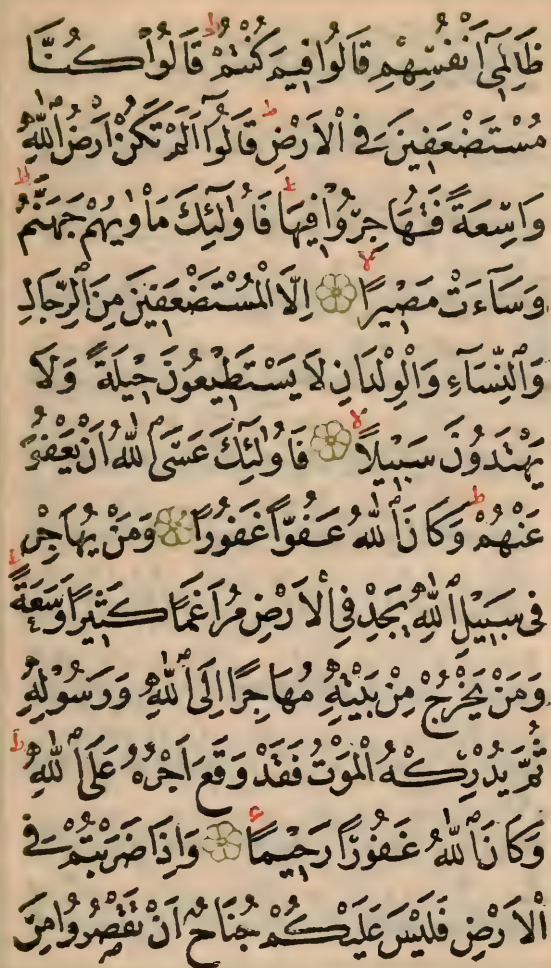 ظَالِمِىٓ اَنْفُسِهِمْ قَالُوا فِيمَ كُنْتُمْ ط قَالُوا كُنَّا
مُسْتَضْعَفِينَ فِى الْاَرْضِ ط قَالُوٓا اَلَمْ تَكُنْ اَرْضُ اللّٰهِ
وَاسِعَةً فَتُهَاجِرُوا فِيهَا ط فَاُولٰٓئِكَ مَاْوٰيهُمْ جَهَنَّمُ ط
وَسَآءَتْ مَصِيرًا لا اِلَّا الْمُسْتَضْعَفِينَ مِنَ الرِّجَالِ
وَالنِّسَآءِ وَالْوِلْدَانِ لَا يَسْتَطِيعُونَ حِيلَةً وَلَا
يَهْتَدُونَ سَبِيلًا لا فَاُولٰٓئِكَ عَسَى اللّٰهُ اَنْ يَعْفُوَ
عَنْهُمْ ط وَكَانَ اللّٰهُ عَفُوًّا غَفُورًا وَمَنْ يُهَاجِرْ
فِى سَبِيلِ اللّٰهِ يَجِدْ فِى الْاَرْضِ مُرَاغَمًا كَثِيرًا وَسَعَةً ط
وَمَنْ يَخْرُجْ مِنْ بَيْتِهِ مُهَاجِرًا اِلَى اللّٰهِ وَرَسُولِهِ
ثُمَّ يُدْرِكْهُ الْمَوْتُ فَقَدْ وَقَعَ اَجْرُهُ عَلَى اللّٰهِ ط
وَكَانَ اللّٰهُ غَفُورًا رَحِيمًا ع وَاِذَا ضَرَبْتُمْ فِى
الْاَرْضِ فَلَيْسَ عَلَيْكُمْ جُنَاحٌ اَنْ تَقْصُرُوا مِنَ